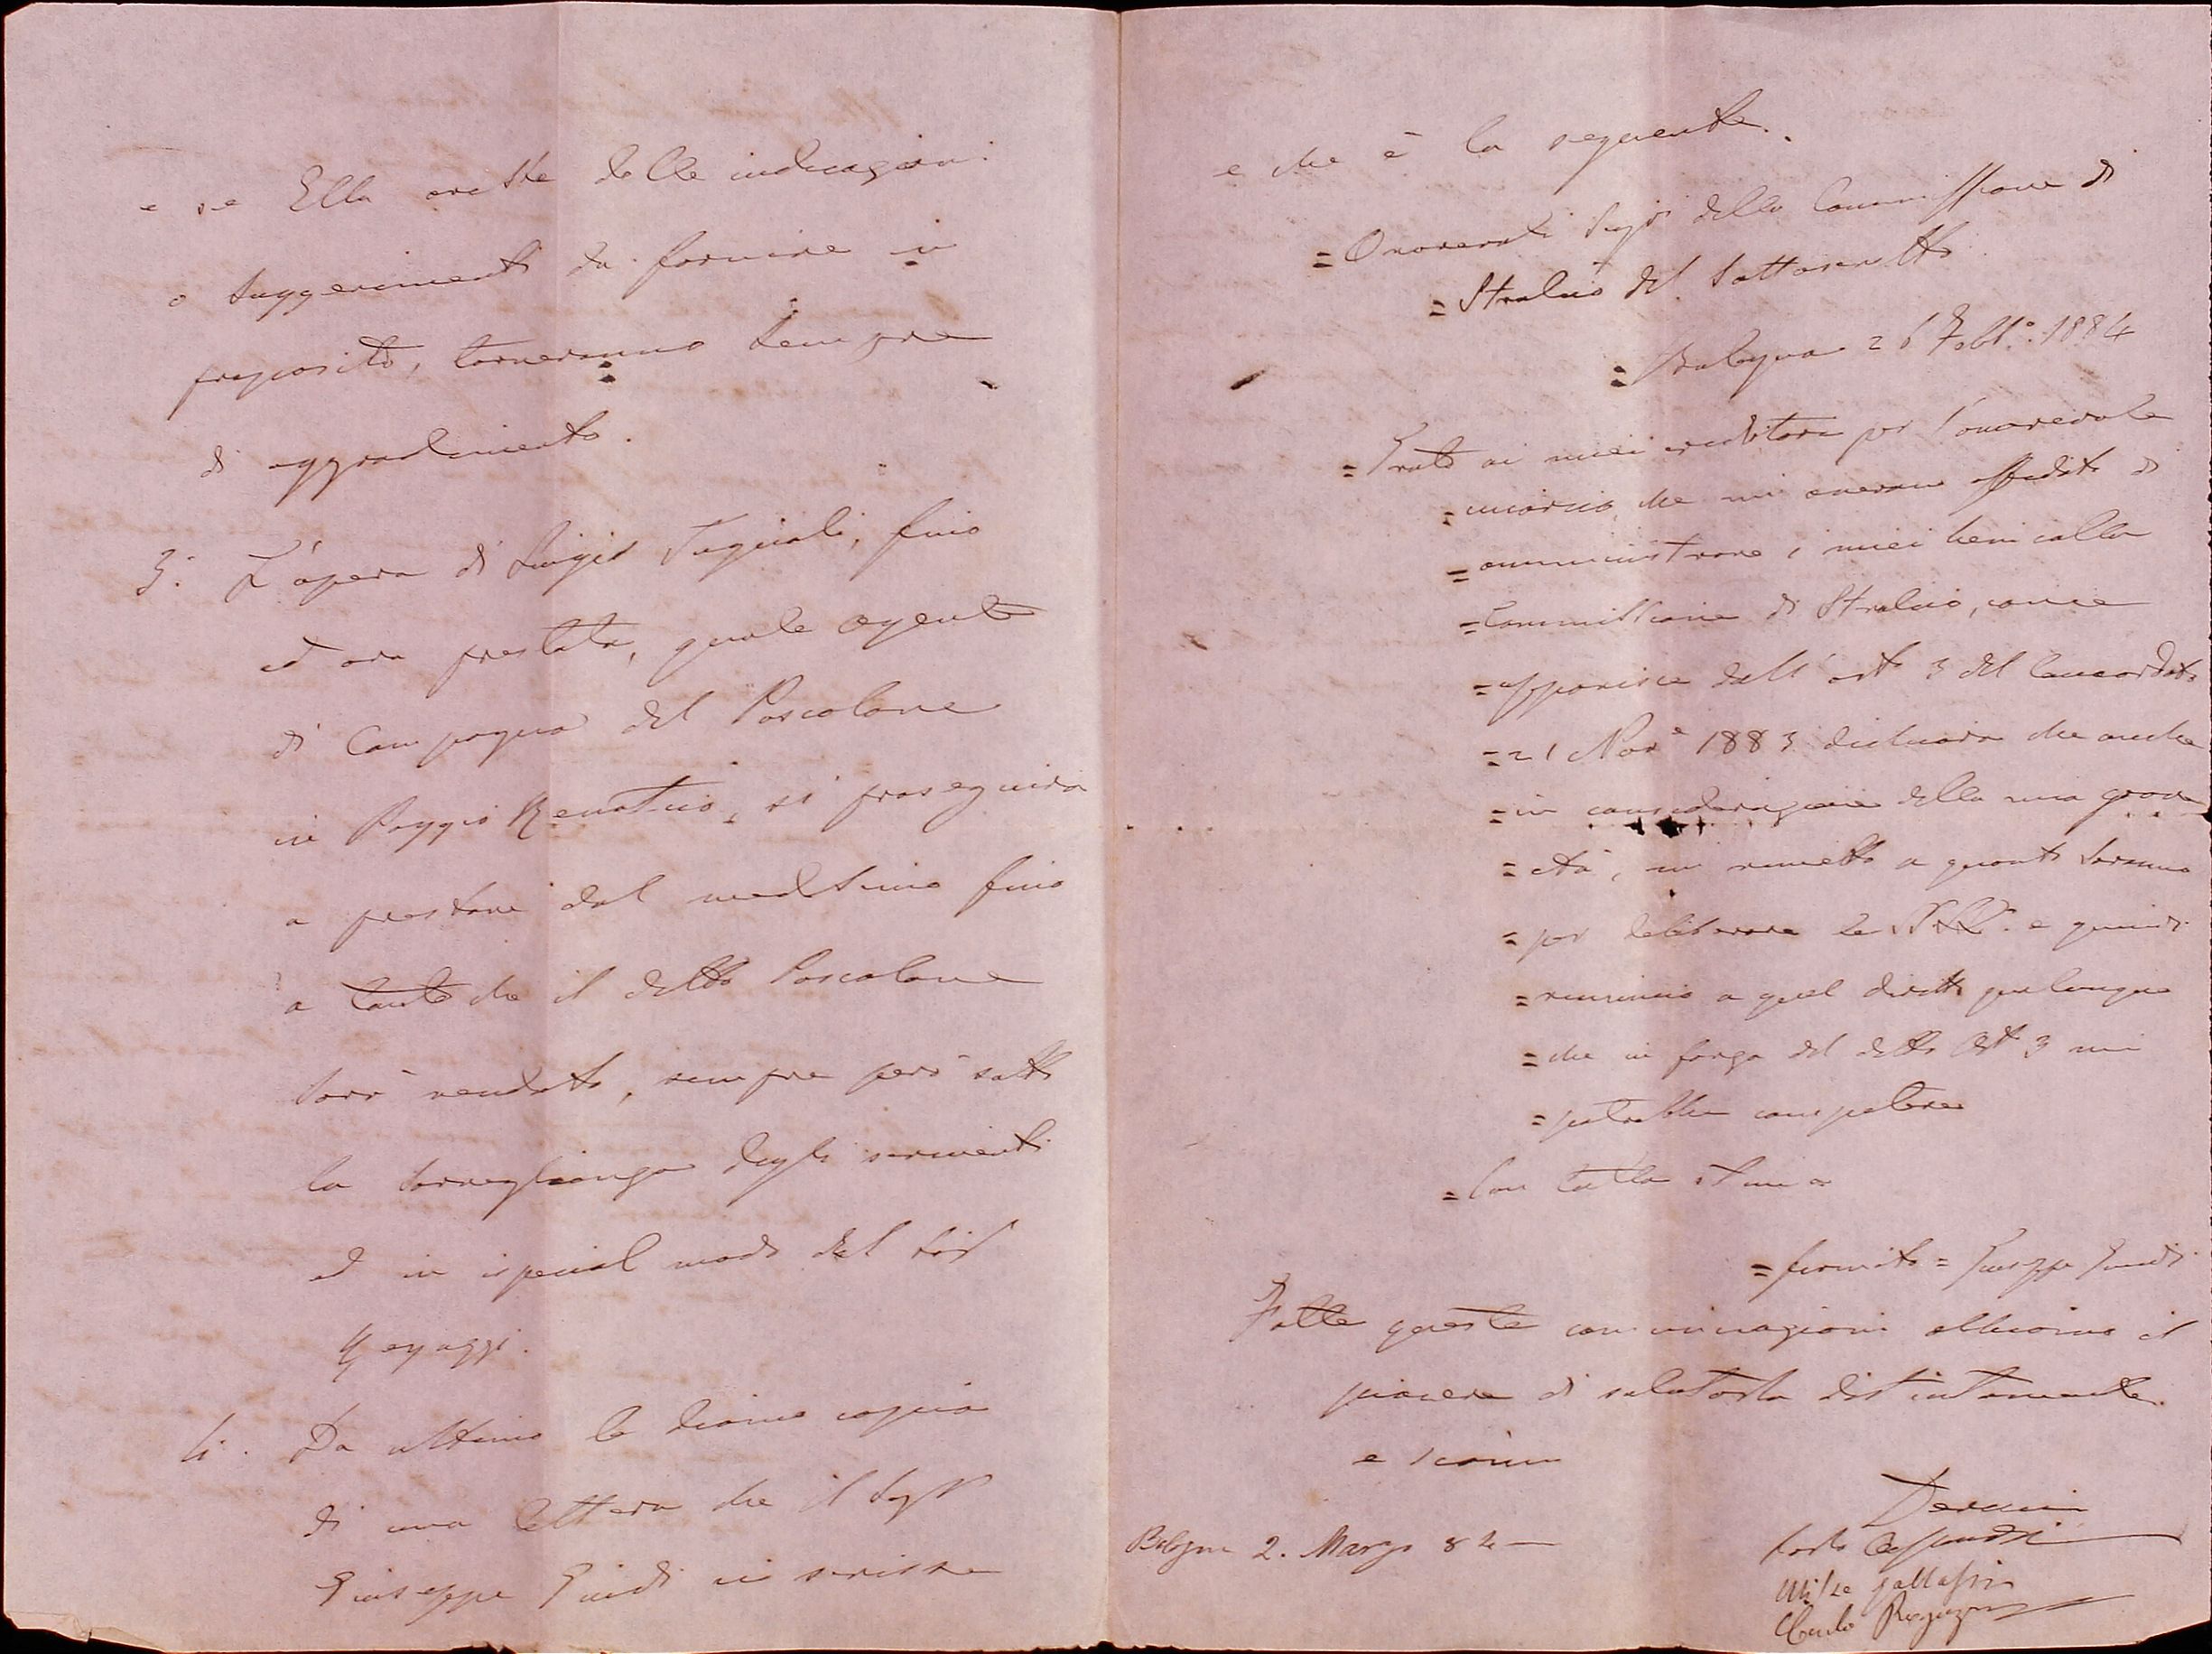 e se Ella avesse delle indicazioni
o suggerimenti da fornire in
proposito, torneranno sempre
di aggradimento.
3.° L'opera di Luigi Tugnoli, fino
ad ora prestata, quale agente
di Campagna del Poscolone
in Poggio Renatico, si proseguirà
a prestare dal medesimo fino
a tanto che il detto Poscolone
sarà venduto, sempre però sotto
la sorveglianza degli scriventi
ed in ispecial modo del Sigr
4. Da ultimo le diamo copia
di una lettera che il Sigr
Giuseppe Guidi ci scrisse
e che è la seguente.
= Onorevoli Sigri della Commissione di
= Stralcio del Sottoscritto
= Bologna 26 Febb.° 1884
= Grato ai miei creditori per l'onorevole
= incarico che mi avevano affidato di
= amministrare i miei beni colla
= Commissione di Stralcio, come
= apparisce dall' art 3 del Concordato
= 21 Nove 1883 dichiaro che anche
= in considerazione della mia grave
= età, mi rimetto a quanto saranno
= per deliberare le SS.LL. e quindi
= rinuncio a quel diritto qualunque
= che in forza del detto Art 3 mi
= potrebbe competere
= Con tutta stima
= firmato = Giuseppe Guidi
Fatte queste comunicazioni abbiamo il
piacere di salutarla distintamente.
e siamo
Bologna 2. Marzo 84
Carlo